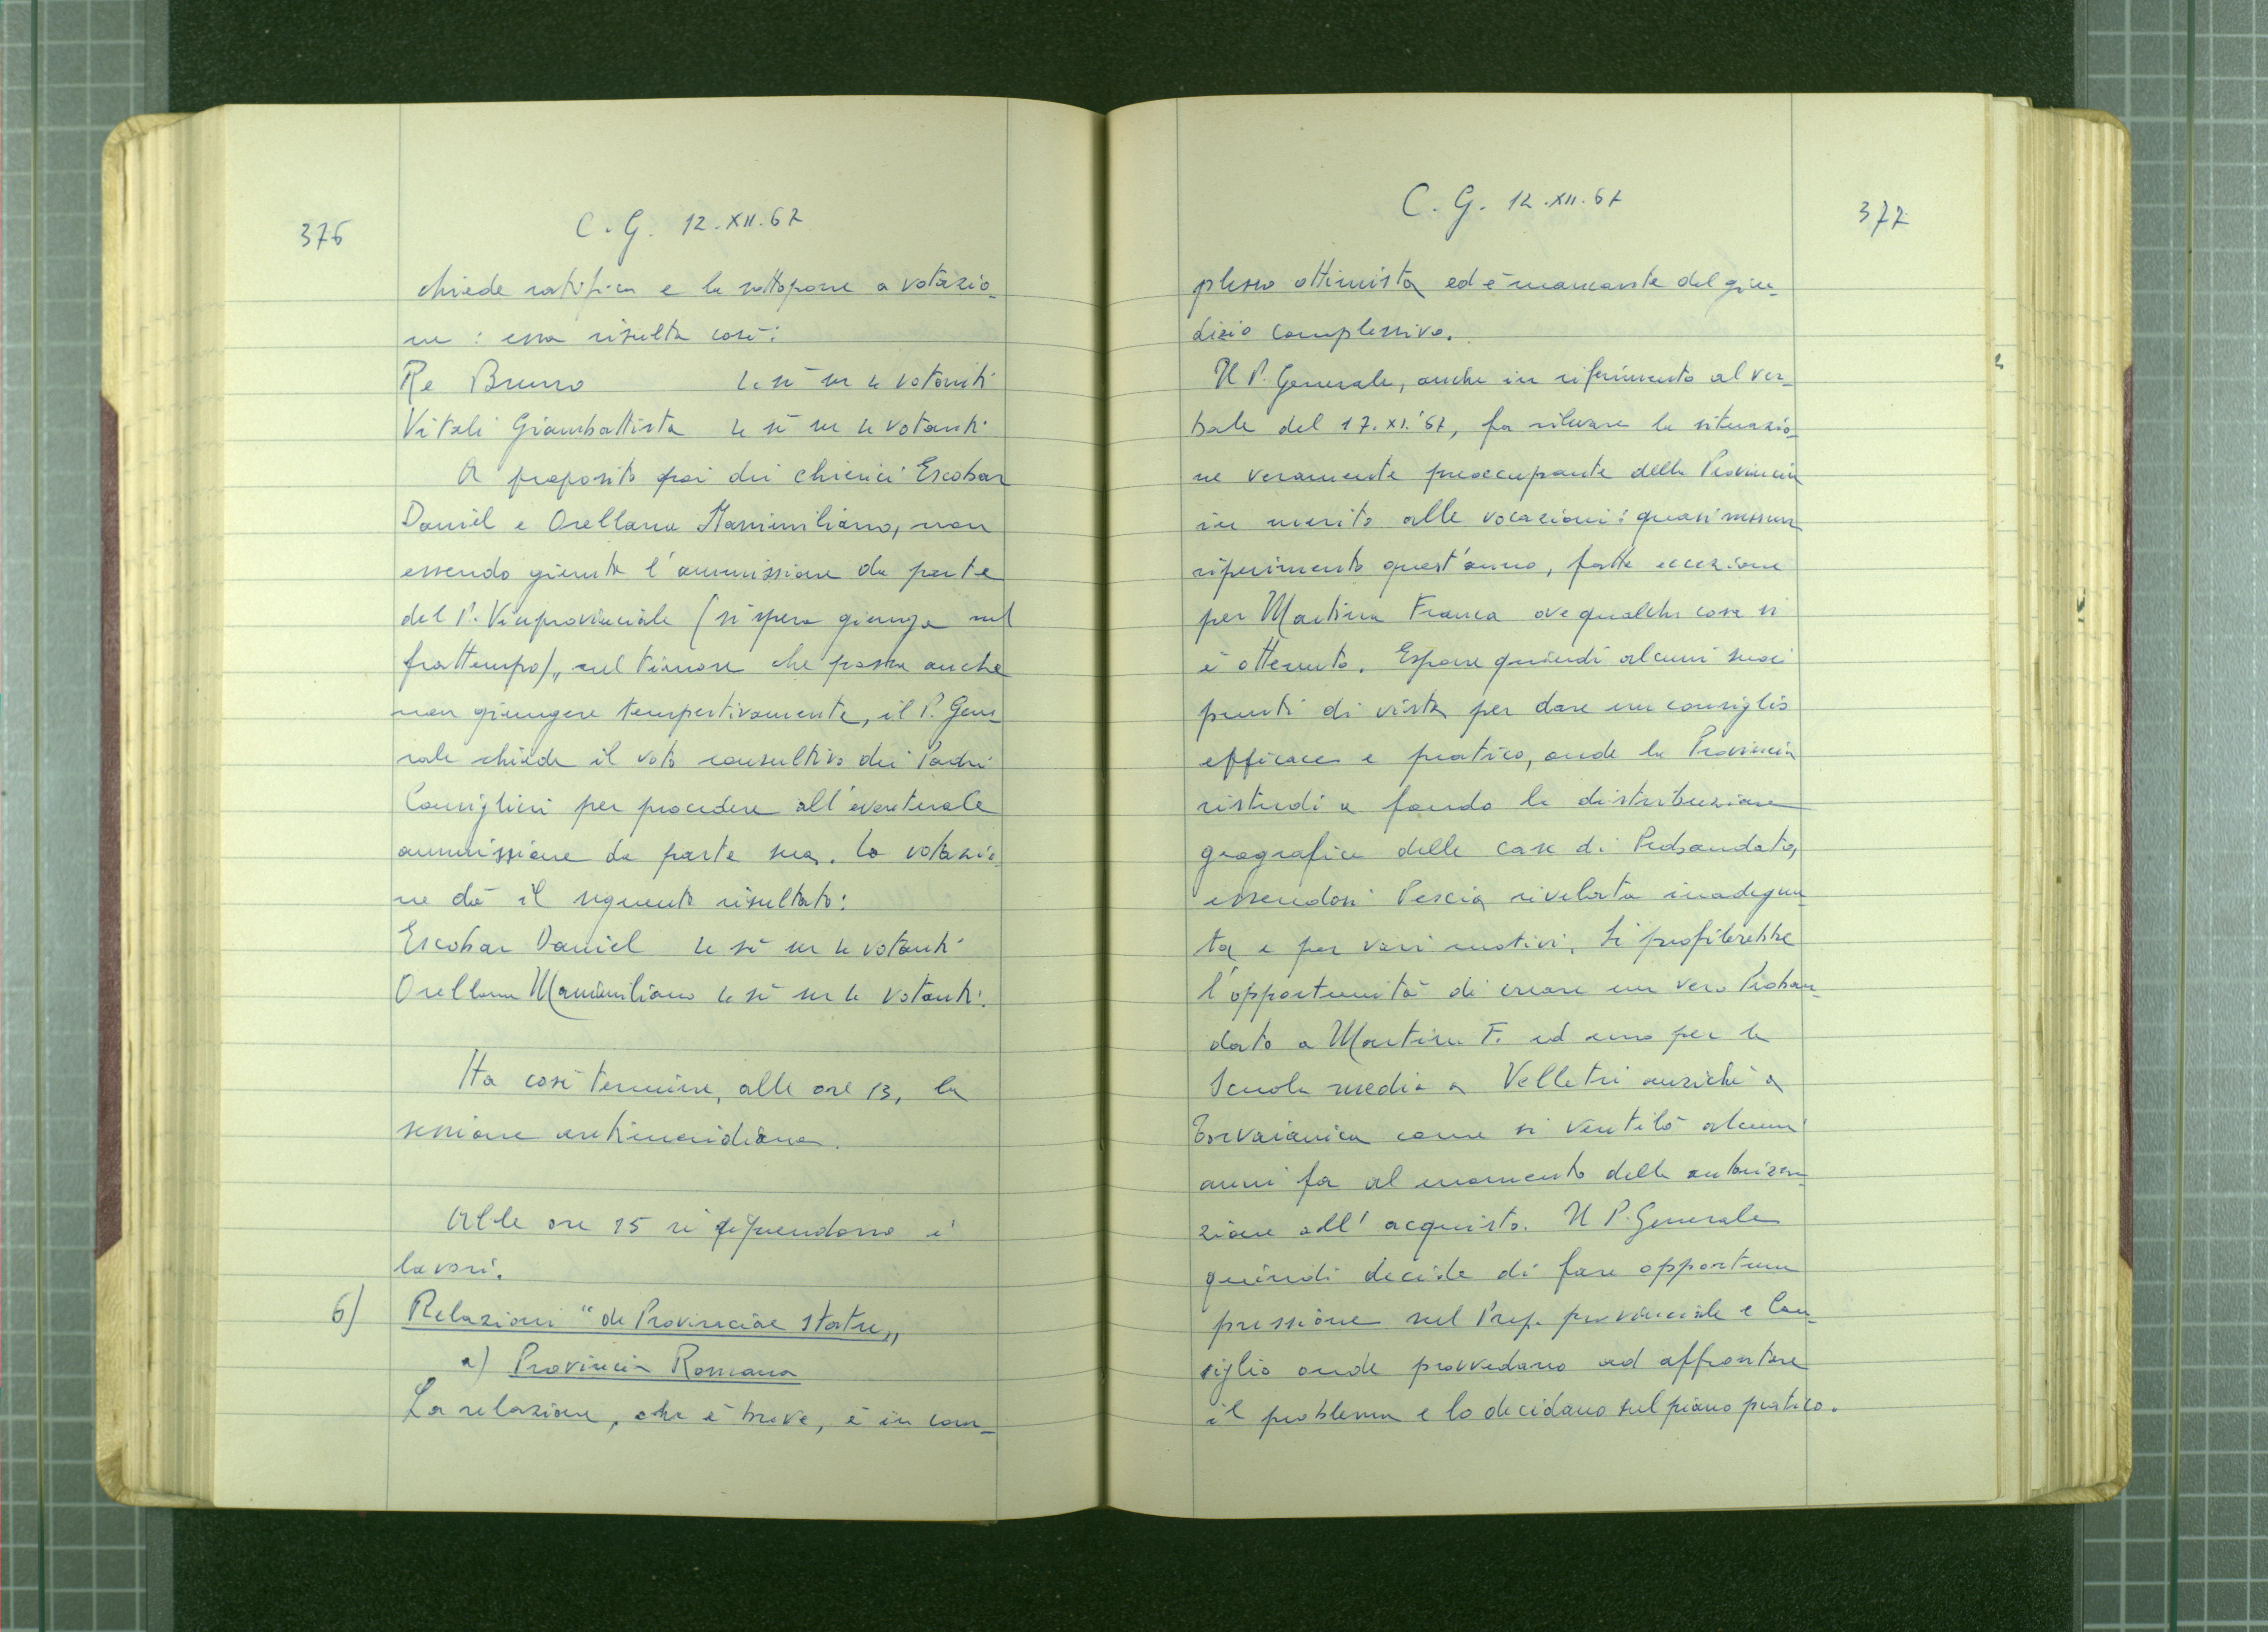 376
C. G. 12.XII.67
chiede ratifica e la sottopone a votazio-
ne : essa risulta così:
Re Bruno 4 sì su 4 votanti
Vitali Giambattista 4 sì su 4 votanti
A proposito poi dei chierici Escobar
Daniel e Orellana Massimiliano, non
essendo giunta l'ammissione da parte
del P. Viceprovinciale (si spera giunga nel
frattempo), nel timore che possa anche
non giungere tempestivamente, il P. Gene
rale chiede il voto consultivo dei Padri
Consiglieri per procedere all'eventuale
ammissione da parte sua. La votazio-
ne dà il seguente risultato:
Escobar Daniel 4 sì su 4 votanti
Orellana Massimiliano 4 sì su 4 votanti.
Ha così termine, alle ore 13, la
sessione antimeridiana.
Alle ore 15 si riprendono i
lavori.
6) Relazioni "de Provinciae statu„
a) Provincia Romana
La relazione, che è breve, è in com-
C. G. 12.XII.67
377
plesso ottimista ed è mancante del giu-
dizio complessivo.
Il P. Generale, anche in riferimento al ver-
bale del 17.XI.'67, fa rilevare la situazio-
ne veramente preoccupante della Provincia
in merito alle vocazioni: quasi nessun
riferimento quest'anno, fatta eccezione
per Martina Franca ove qualche cosa si
è ottenuto. Espone quindi alcuni suoi
punti di vista per dare un consiglio
efficace e pratico, onde la Provincia
ristudi a fondo la distribuzione
geografica delle case di Probandato,
essendosi Pescia rivelata inadegua-
ta e per vari motivi. Si profilerebbe
l'opportunità di creare un vero Proban-
dato a Martina F. ed uno per la
Scuola media a Velletri anziché a
Torvaianica come si ventilò alcuni
anni fa al momento della autorizza-
zione all'acquisto. Il P. Generale
quindi decide di fare opportuna
pressione sul Prep. provinciale e Con-
siglio onde provvedano ad affrontare
il problema e lo decidano sul piano pratico.